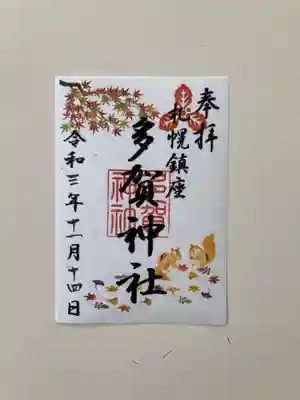 奉拝
札幌鎮座
多賀神社
令和三年十一月十四日